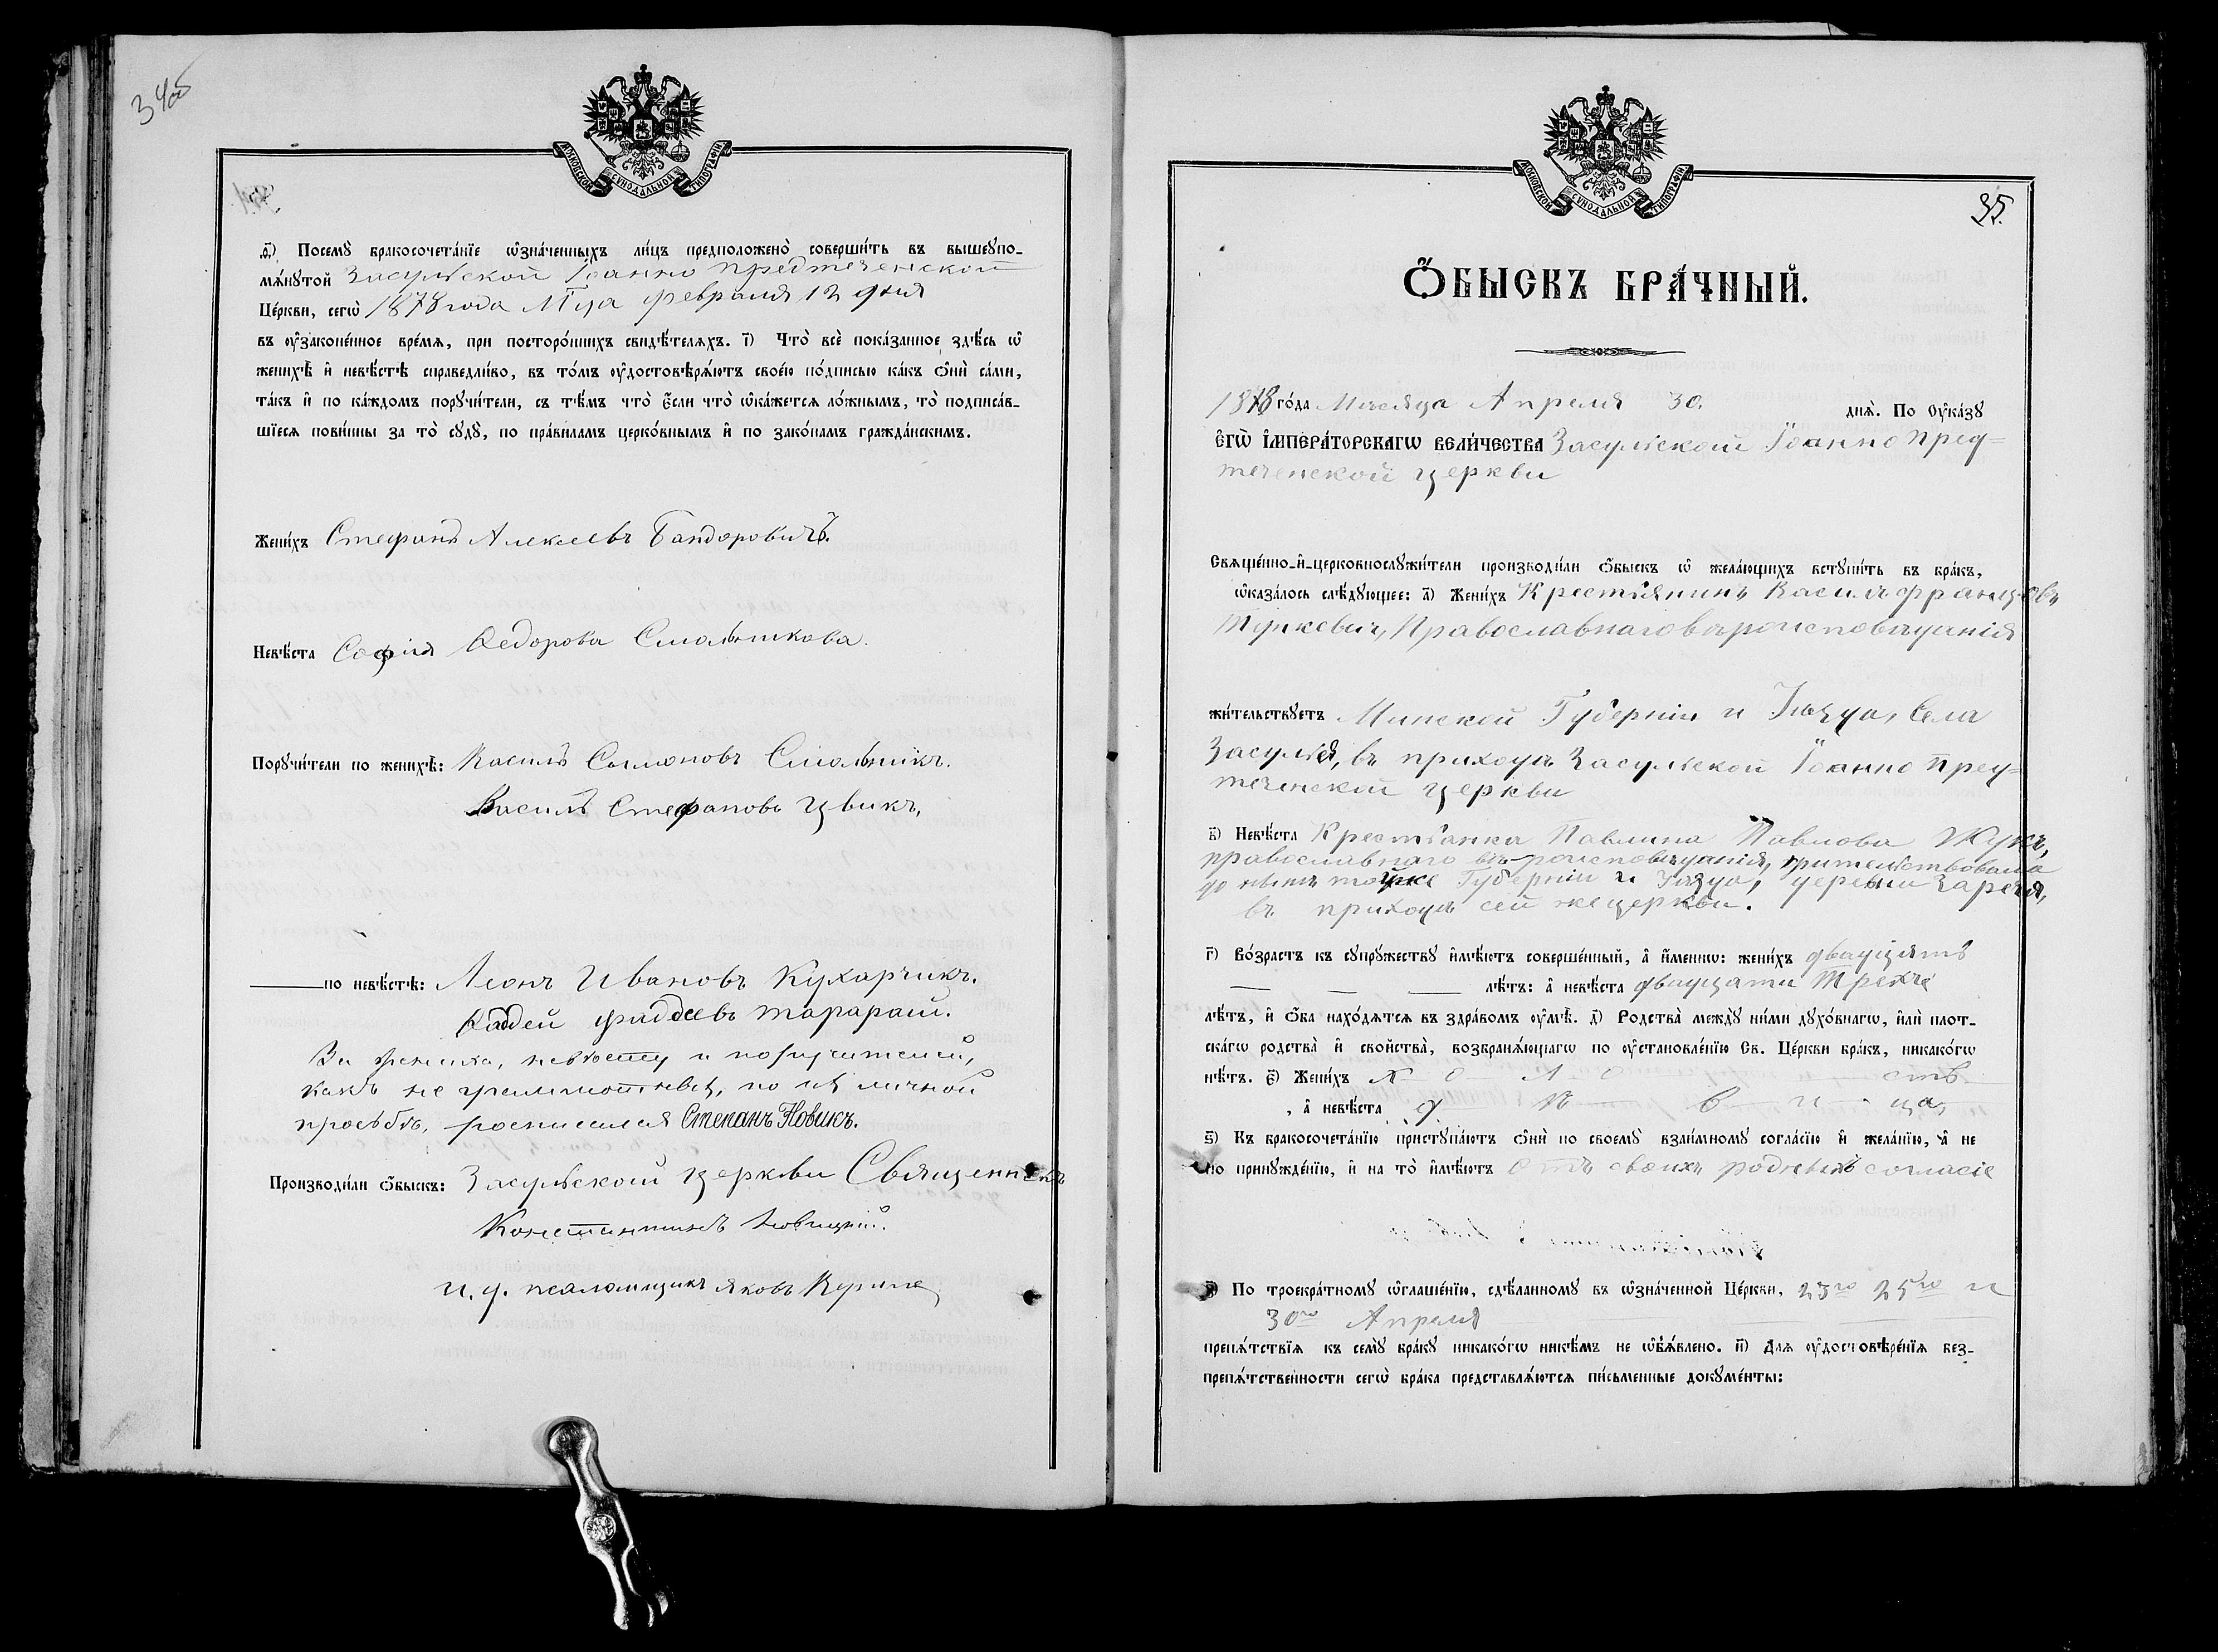 34об
МОСКОВСКОЙ СѴНОДАЛЬНОЙ ТИПОГРАФІИ
ѳ҃) Посемꙋ̀ бракосочета́нїе ѡ҆зна́ченныхъ ли́цъ предположено̀ соверши́ть въ вышеꙋпо-
мѧ́нꙋтой Засульской Іоанно предтеченской
Це́ркви, сегѡ̀ 1878 года Мца февраля 12 дня
въ ᲂу҆законе́нное вре́мѧ, при посторо́ннихъ свидѣ́телѧхъ. і҃) Что̀ всѐ пока́занное здѣ́сь ѡ҆
женихѣ̀ и҆ невѣ́стѣ справедли́во, въ то́мъ ᲂу҆достовѣрѧ́ютъ своє́ю по́дписью ка́къ ѻ҆нѝ са́ми,
та́къ и҆ по ка́ждомъ порꙋчи́тели, съ тѣ́мъ что̀ є҆́сли что̀ ѡ҆ка́жетсѧ ло́жнымъ, то̀ подписа́в-
шїесѧ пови́нны за то̀ сꙋдꙋ̀, по пра́виламъ церко́внымъ и҆ по зако́намъ гражда́нскимъ.
Жени́хъ Стефанъ Алексеевъ Бандоровичъ.
Невѣ́ста Софія Федорова Смольникова.
Порꙋчи́тели по женихѣ̀: Василь Сымоновъ Смольникъ.
Василь Стефановъ Цвикъ.
по невѣ́стѣ: Леонъ Ивановъ Кухарчикъ.
Фаддей фаддеевъ Тарараш.
За жениха, невѣсту и поручителей,
какъ не граммотныхъ, по ихъ личной
просьбѣ, росписался Степанъ Новикъ.
Производи́ли ѻ҆́быскъ: Засульской церкви Священникъ
Константинъ Новицкій.
и. д. псаломщикъ Яковъ
МОСКОВСКОЙ СѴНОДАЛЬНОЙ ТИПОГРАФІИ
35.
Ѻ҆́БЫСКЪ БРА́ЧНЫЙ.
1878 го́да Месяца Апреля 30. днѧ̀. По Оу҆ка́зꙋ
Є҆ГѠ̀ І҆МПЕРА́ТОРСКАГѠ ВЕЛИ́ЧЕСТВА Засульской Іоанно Пред=
теченской церкви
Свѧще́нно-и҆-церковнослꙋжи́тели производи́ли ѻ҆́быскъ ѡ҆ жела́ющихъ встꙋпи́ть въ бра́къ,
ѡ҆каза́лось слѣ́дꙋющее: а҃) Жени́хъ Крестьянинъ Василь францовъ
Тункевичъ, Православнаго вѣроисповѣданія
жи́тельствꙋетъ Минской Губерніи и Уѣзда, Села
Засулья, въ приходѣ Засульской Іоанно Пред=
теченской церкви
в҃) Невѣ́ста Крестьянка Павлина Павлова Жукъ,
православнаго вѣроисповѣданія, жительствовала
до нынѣ тойже Губерніи и Уѣзда, деревни Заречья,
въ приходѣ сей же церкви.
г҃) Во́зрастъ къ сꙋпрꙋ́жествꙋ и҆мѣ́ютъ соверше́нный, а҆ и҆́менно: жени́хъ двадцать
лѣ́тъ: а҆ невѣ́ста двадцати Трехъ
лѣ́тъ, и҆ ѻ҆́ба нахо́дѧтсѧ въ здра́вомъ ᲂу҆мѣ̀. д҃) Родства̀ междꙋ̀ ни́ми дꙋхо́внагѡ, и҆лѝ плот-
ска́гѡ родства̀ и҆ сво́йства, возбранѧ́ющагѡ по ᲂу҆становле́нїю Св. Це́ркви бра́къ, никако́гѡ
нѣ́тъ. є҃) Жени́хъ Х о л о сть
, а҆ невѣ́ста д ѣ в и ца,
ѕ҃) Къ бракосочета́нїю пристꙋпа́ютъ ѻ҆нѝ по своемꙋ̀ взаи́мномꙋ согла́сїю и҆ жела́нїю, а҆ не
по принꙋжде́нїю, и҆ на то̀ и҆мѣ́ютъ отъ своихъ родныхъ согласіе
з҃) По троекра́тномꙋ ѡ҆глаше́нїю, сдѣ́ланномꙋ въ ѡ҆зна́ченной Це́ркви, 23го 25го и
30го Апреля
препѧ́тствїѧ къ семꙋ̀ бра́кꙋ никако́гѡ никѣ́мъ не ѡ҆б̾ѧ́влено. и҃) Длѧ ᲂу҆достовѣре́нїѧ без-
препѧ́тственности сегѡ̀ бра́ка представлѧ́ютсѧ пи́сьменные докꙋме́нты: